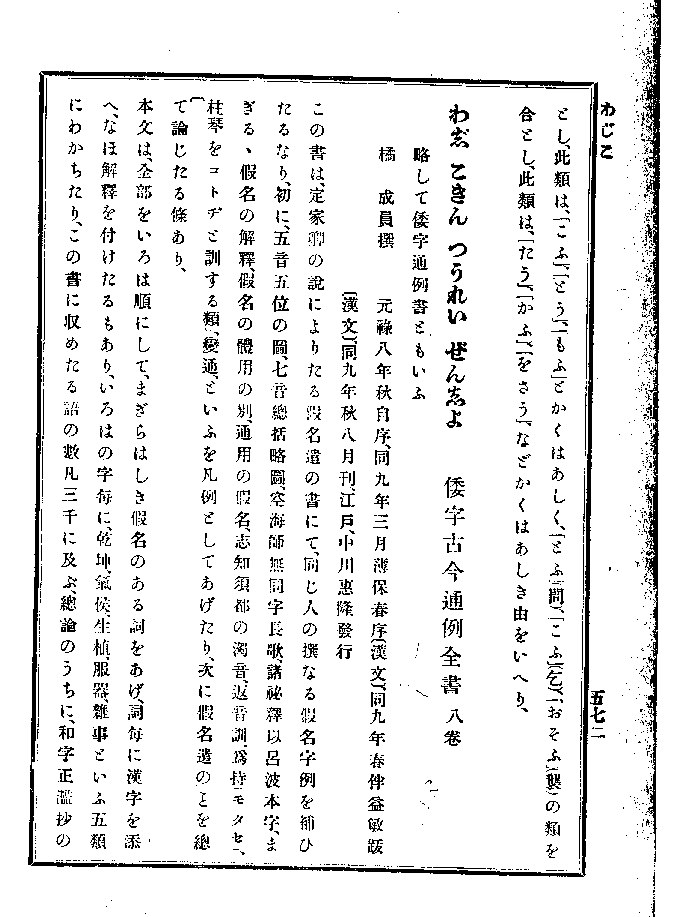 わじこ
五七二
とし、此類は、「こふ」、「とう」、「もふ」とかくはあしく、「とふ」(問)、「こふ」(乞)、「おそふ」(襲)の類を
合とし、此類は、「たう」、「かふ」、「をさう」、などかくはあしき由をいへり、
わじ こきん つうれい ぜんしよ 倭字古今通例全書 八卷
略して倭字通例書ともいふ
橘 成員撰 元祿八年秋自序、同九年三月薄保春序(漢文)、同九年春伴益敏跋
(漢文)、同九年秋八月刊、江戶、中川惠隆發行
この書は、定家卿の說によりたる假名遣の書にて、同じ人の撰なる假名字例を補ひ
たるなり、初に、五音五位の圖、七音總括略圖、空海師無同字長歌、諸祕釋以呂波本字、ま
ぎる、假名の解釋、假名の體用の別、通用の假名、志知須都の濁音、返音訓、爲持(モタセ、
柱琴をコトヂと訓する類)、變通、といふを凡例としてあげたり、次に假名遣のとを總
て論じたる條あり、
本文は、全部をいろは順にして、まぎらはしき假名のある詞をあげ、詞每に漢字を添
へ、なほ解釋を付けたるもあり、いろはの字每に、乾坤、氣侯、生植、服器、雜事といふ五類
にわかちたり、この書に収めたる語の數凡三千に及ぶ、總論のうちに、和字正濫抄の